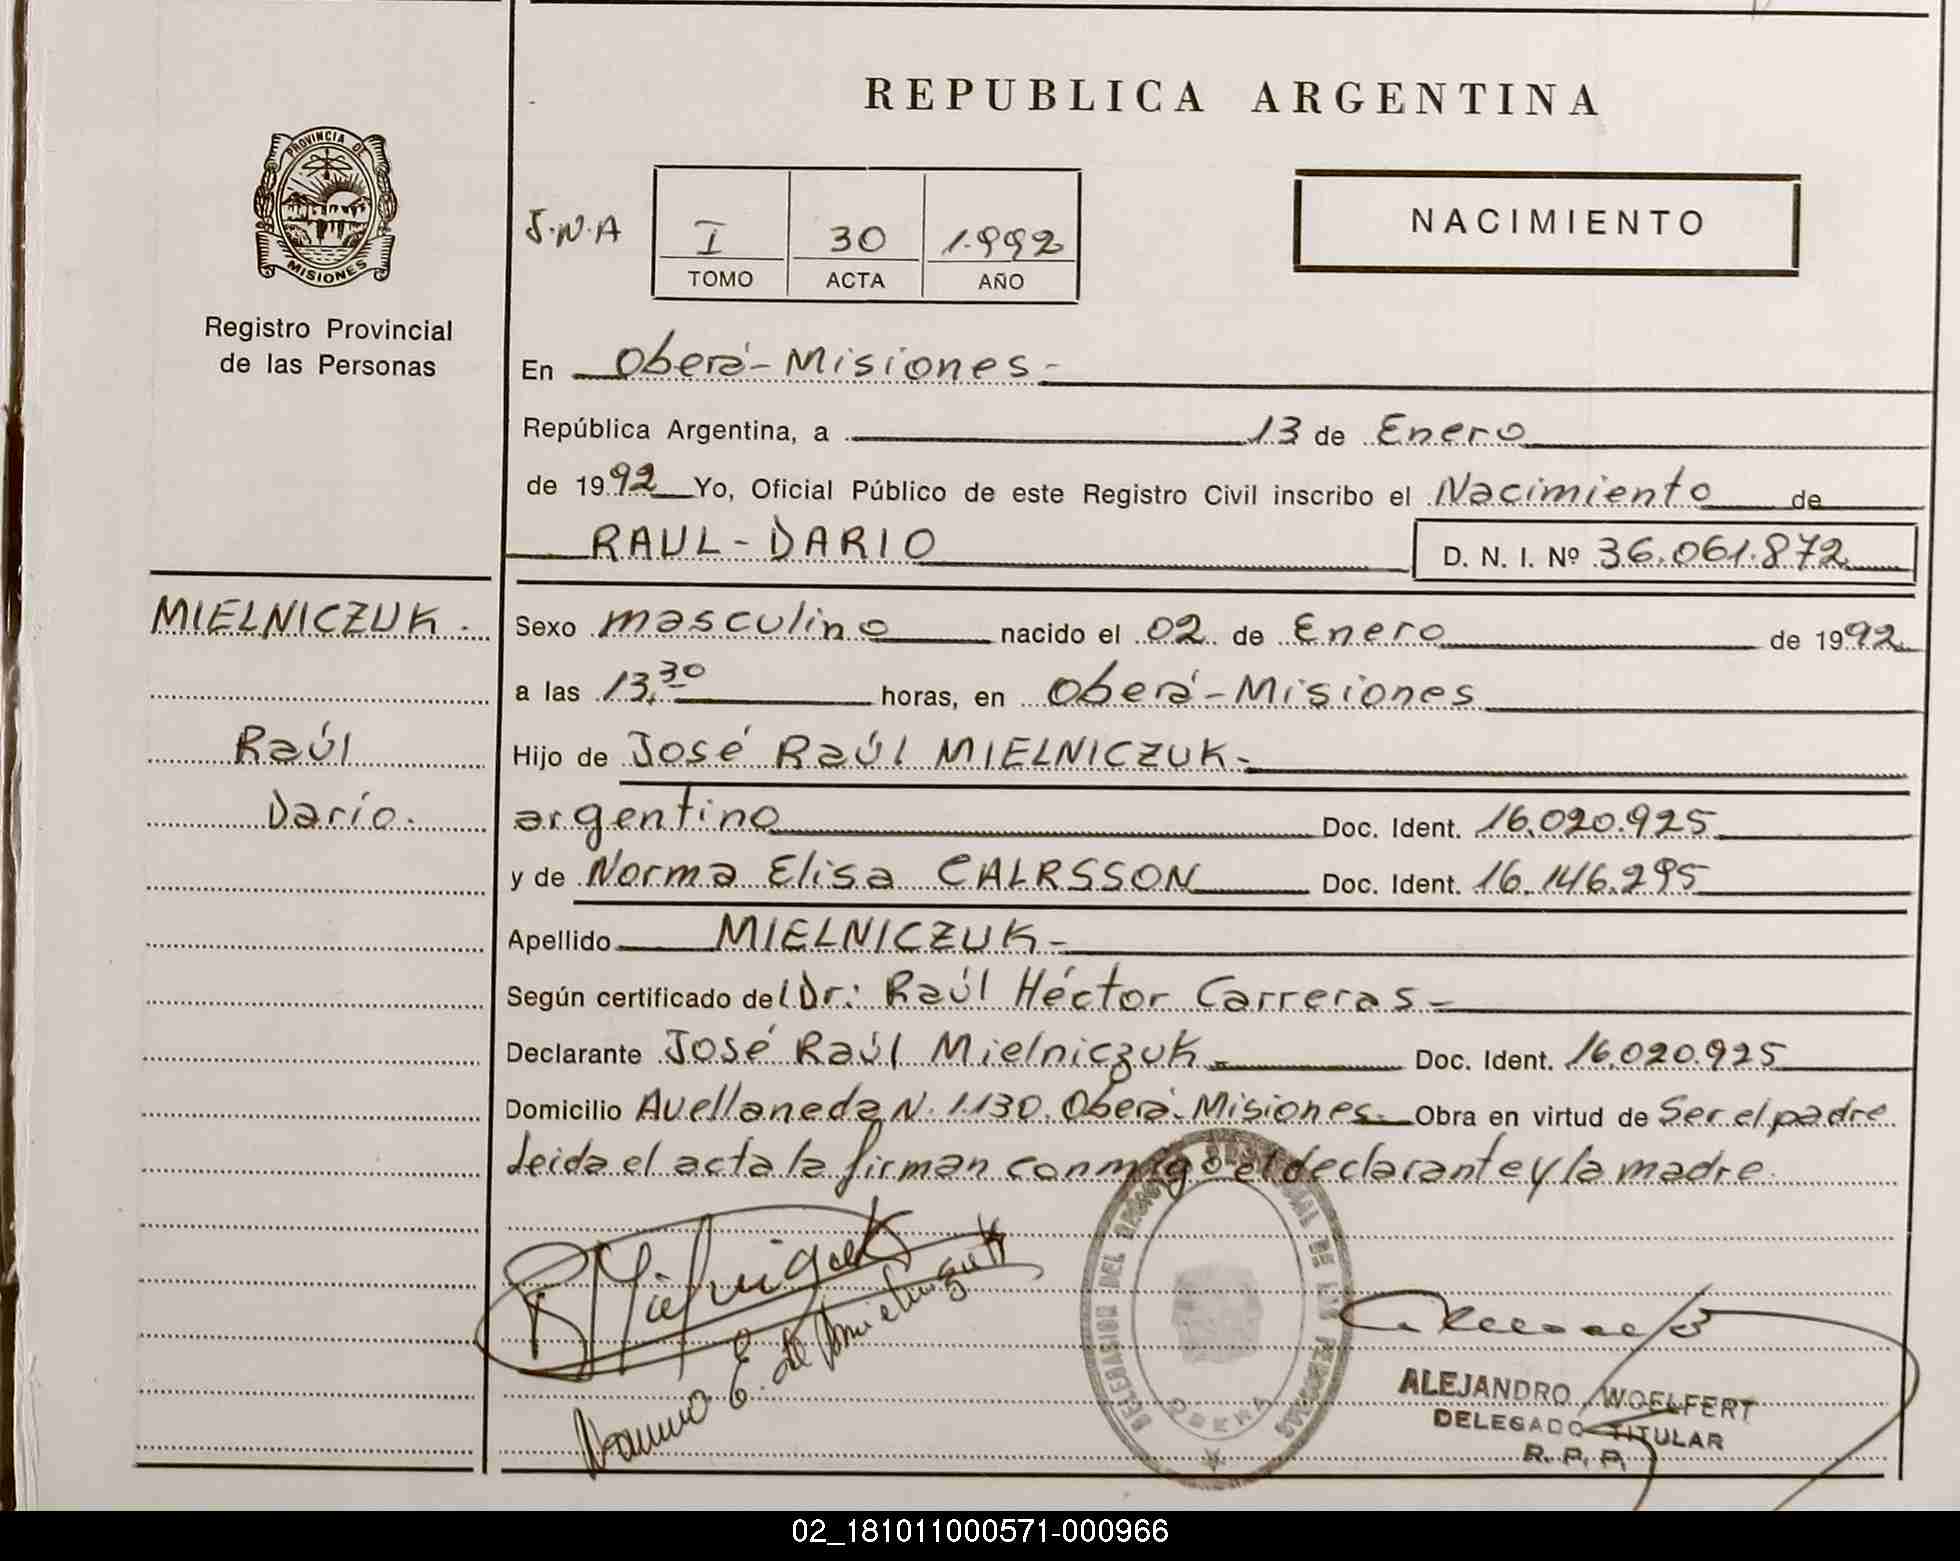 REPUBLICA ARGENTINA
PROVINCIA DE
MISIONES
Registro Provincial
de las Personas
NACIMIENTO
J.N.A I 30 1.992
TOMO ACTA AÑO
En Oberá-Misiones-
República Argentina, a 13 de Enero
de 1992 Yo, Oficial Público de este Registro Civil inscribo el Nacimiento de
RAUL-DARIO D. N. I. Nº 36.061.872
MIELNICZUK.
Raúl
Darío.
Sexo masculino nacido el 02 de Enero de 1992
a las 13,30 horas, en Oberá-Misiones
Hijo de José Raúl MIELNICZUK-
argentino Doc. Ident. 16.020.925
y de Norma Elisa CALRSSON Doc. Ident. 16.146.295
Apellido MIELNICZUK-
Según certificado del Dr: Raúl Héctor Carreras-
Declarante José Raúl Mielniczuk- Doc. Ident. 16.020.925
Domicilio Avellaneda N. 1.130. Oberá-Misiones- Obra en virtud de Ser el padre
Leida el acta la firman conmigo el declarante y la madre.
DELEGACION DEL REGISTRO PROVINCIAL DE LAS PERSONAS
OBERA
Norma E. de Mielniczuk
ALEJANDRO WOELFERT
DELEGADO TITULAR
R. P. P.
02_181011000571-000966